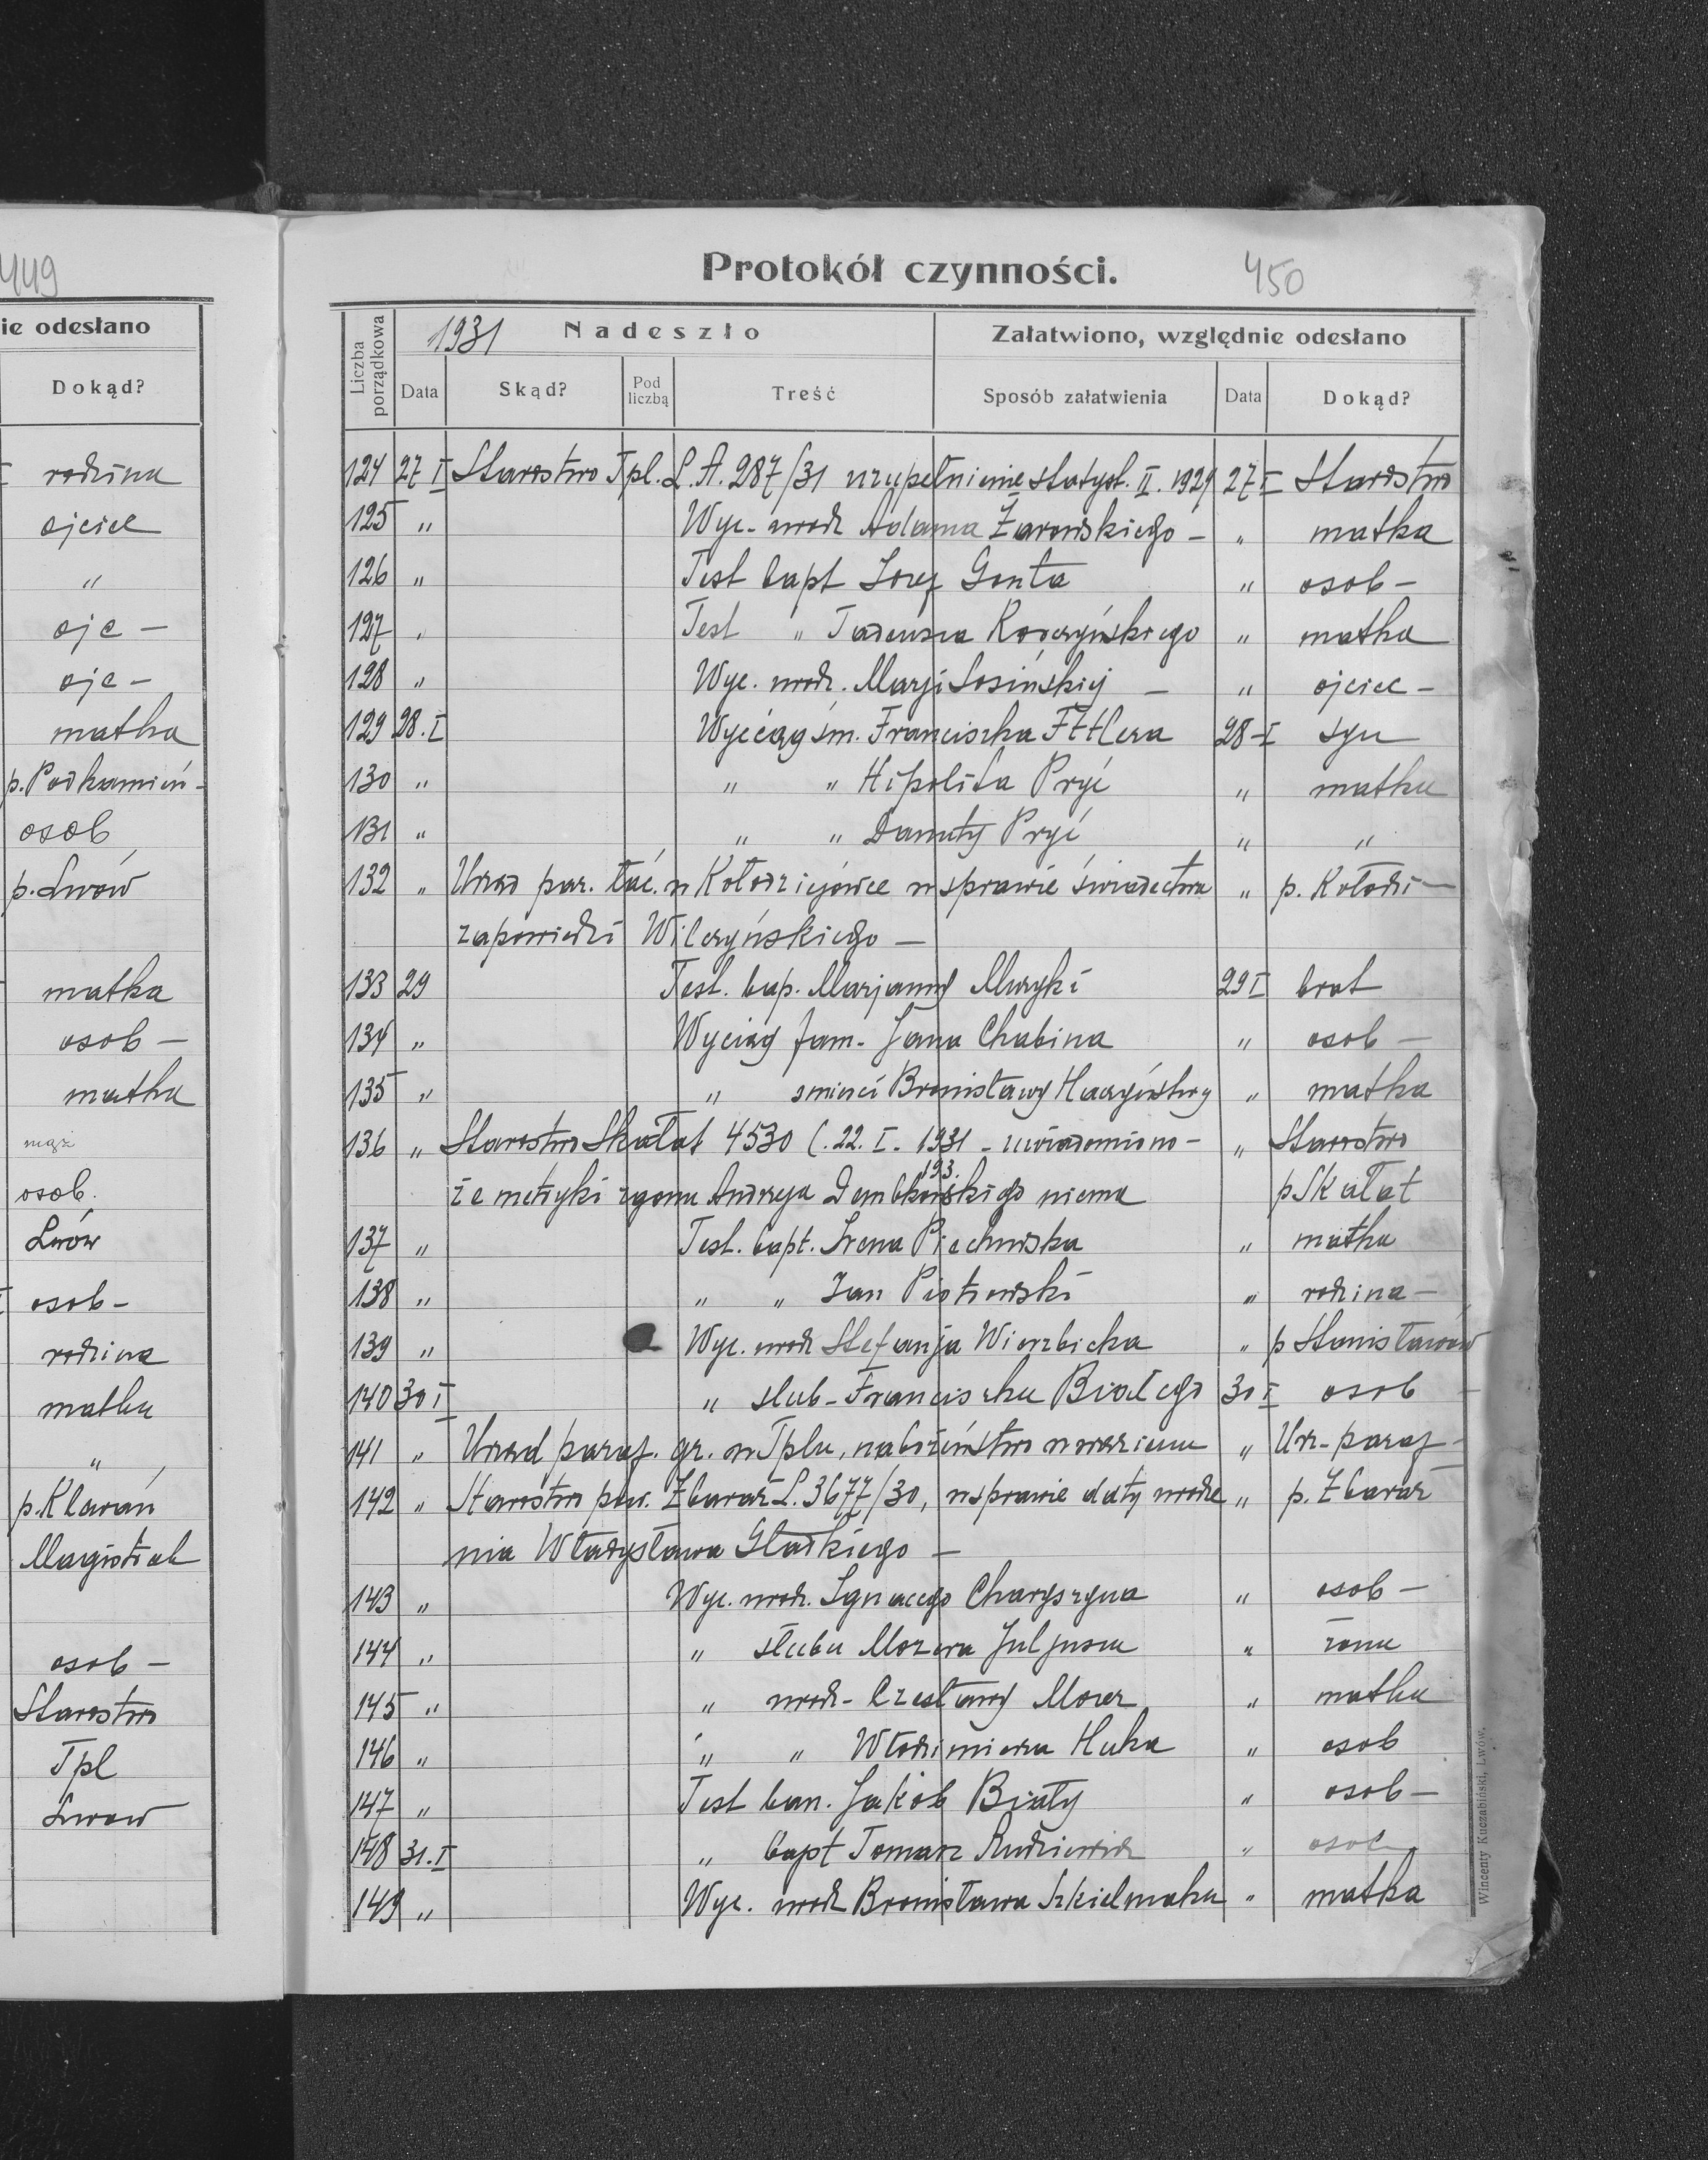 449
ie odesłano
Dokąd?
rodzina
ojciec
"
ojc -
ojc -
matka
p. Podkamień -
osob
p. Lwów
matka
osob -
matka
mąż
osob.
Lwów
osob -
rodzina
matka
"
p. Klewań
Magistrat
osob -
Starostwo
Tpl
Lwow
Protokół czynności.
450
Liczba porządkowa
1931 Nadeszło
Załatwiono, względnie odesłano
Data Skąd? Pod liczbą Treść Sposób załatwienia Data Dokąd?
124 27 I Starostwo Tpl. L. A. 287/31 uzupełnienie statyst. II. 1929 27 I Starostwo
125 " Wyc. urodz Adama Żarowskiego - " matka
126 " Test bapt Józef Gonta " osob -
127 " Test " Tadeusza " matka
128 " Wyc. urodz. Marji Łosińskiej - " ojciec -
129 28. I Wyciąg śm. Franciszka Ettlera 28 - I syn
130 " " " Hipolita Pryć " matka
131 " " " Danuty Pryć " "
132 " Urząd par. łać. w Kołodziejówce w sprawie świadectwa " p. Kołodzi -
zapowiedzi Wilczyńskiego -
133 29 Test. bap. Marjanny Muzyki 29 I brat
134 " Wyciąg fam. Jana Chabina " osob -
135 " " śmierci Bronisławy " matka
136 " Starostwo Skałat 4530 (. 22. I. 1931 - uwiadomiono - " Starostwo
193.
że metryki zgonu Andrzeja Dembkowskiego niema p Skałat
137 " Test. bapt. Irena Piechowska " matka
138 " " " Jan Piotrowski " rodzina -
139 " Wyc. urodz Stefanja Wierzbicka " p Stanisławów
140 30 I " slub - Franciszka Białego 30 I osob -
141 " Urząd paraf. gr. w Tplu, nabożeństwo w więzieniu " Urz - paraf -
142 " Starostwo pow. Zbaraż L. 3677/30, w sprawie daty urodze " p. Zbaraż
nia Władysława Gładkiego -
143 " Wyc. urodz. Ignacego Charyszyna " osob -
144 " " ślubu Mozera Juljusza " żona
145 " " urodz - Czesławy Mozer " matka
146 " " " Włodzimierza Huka " osob
147 " Test ban. Jakób Biały " osob -
148 31. I " bapt Tomasz Rudziewicz " osob
149 " Wyc. urodz Bronisława Szkielmaka " matka
Wincenty Kuczabiński, Lwów.